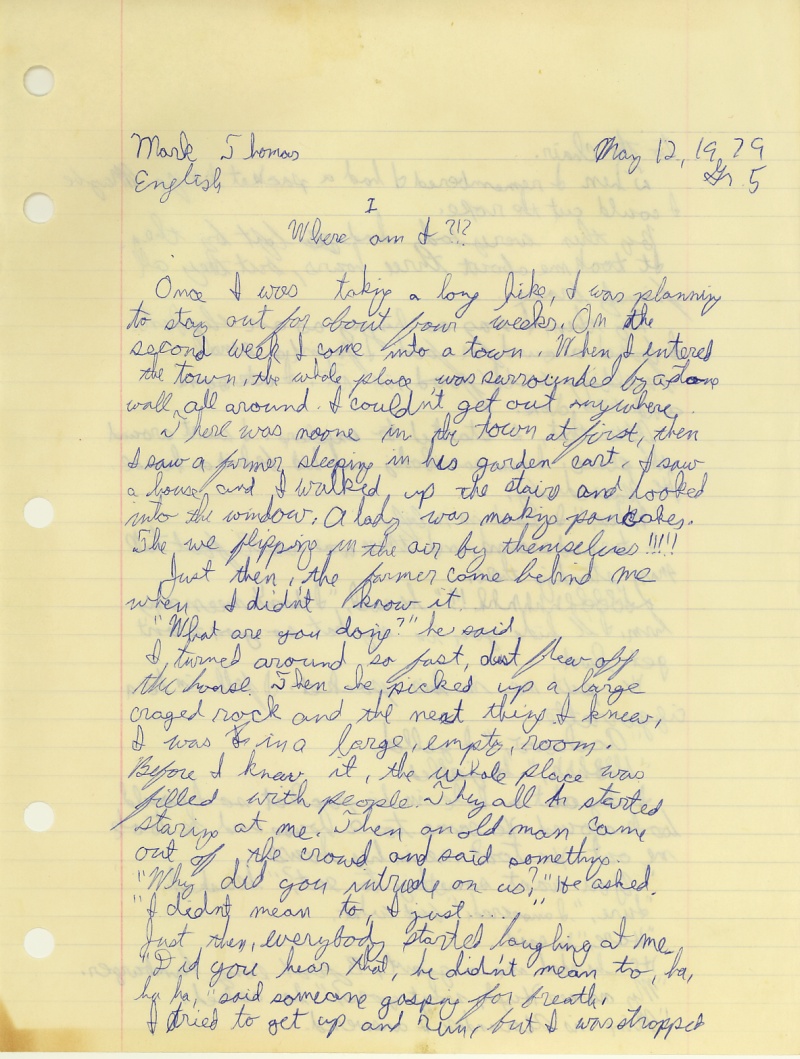 Mark Thomas May 12, 1979
English Gr. 5
I
Where am I ?!?
Once I was taking a long hike, I was planning
to stay out for about four weeks. On the
second week I come into a town. When I entered
the town, the whole place was surrounded by a stone
wall, all around. I couldn't get out anywhere.
There was noone in the town at first, then
I saw a farmer sleeping in his garden cart. I saw
a house and I walked up the stairs and looked
into the window. A lady was making pancakes.
The we flipping in the air by themselves !!!!!
Just then, the farmer come behind me
when I didn't know it.
"What are you doing?" he said
I turned around so fast, dust flew off
the house. Then he picked up a large
craged rock and the next thing I knew,
I was in a large, empty, room.
Before I knew it, the whole place was
filled with people. They all started
staring at me. Then an old man came
out of the crowd and said something.
"Why did you intrude on us?" He asked.
"I didn't mean to, I just....,"
Just then, everybody started laughing at me.
"Did you hear that, he didn't mean to, ha,
ha ha," said someone gasping for breath.
I tried to get up and run, but I was stropped